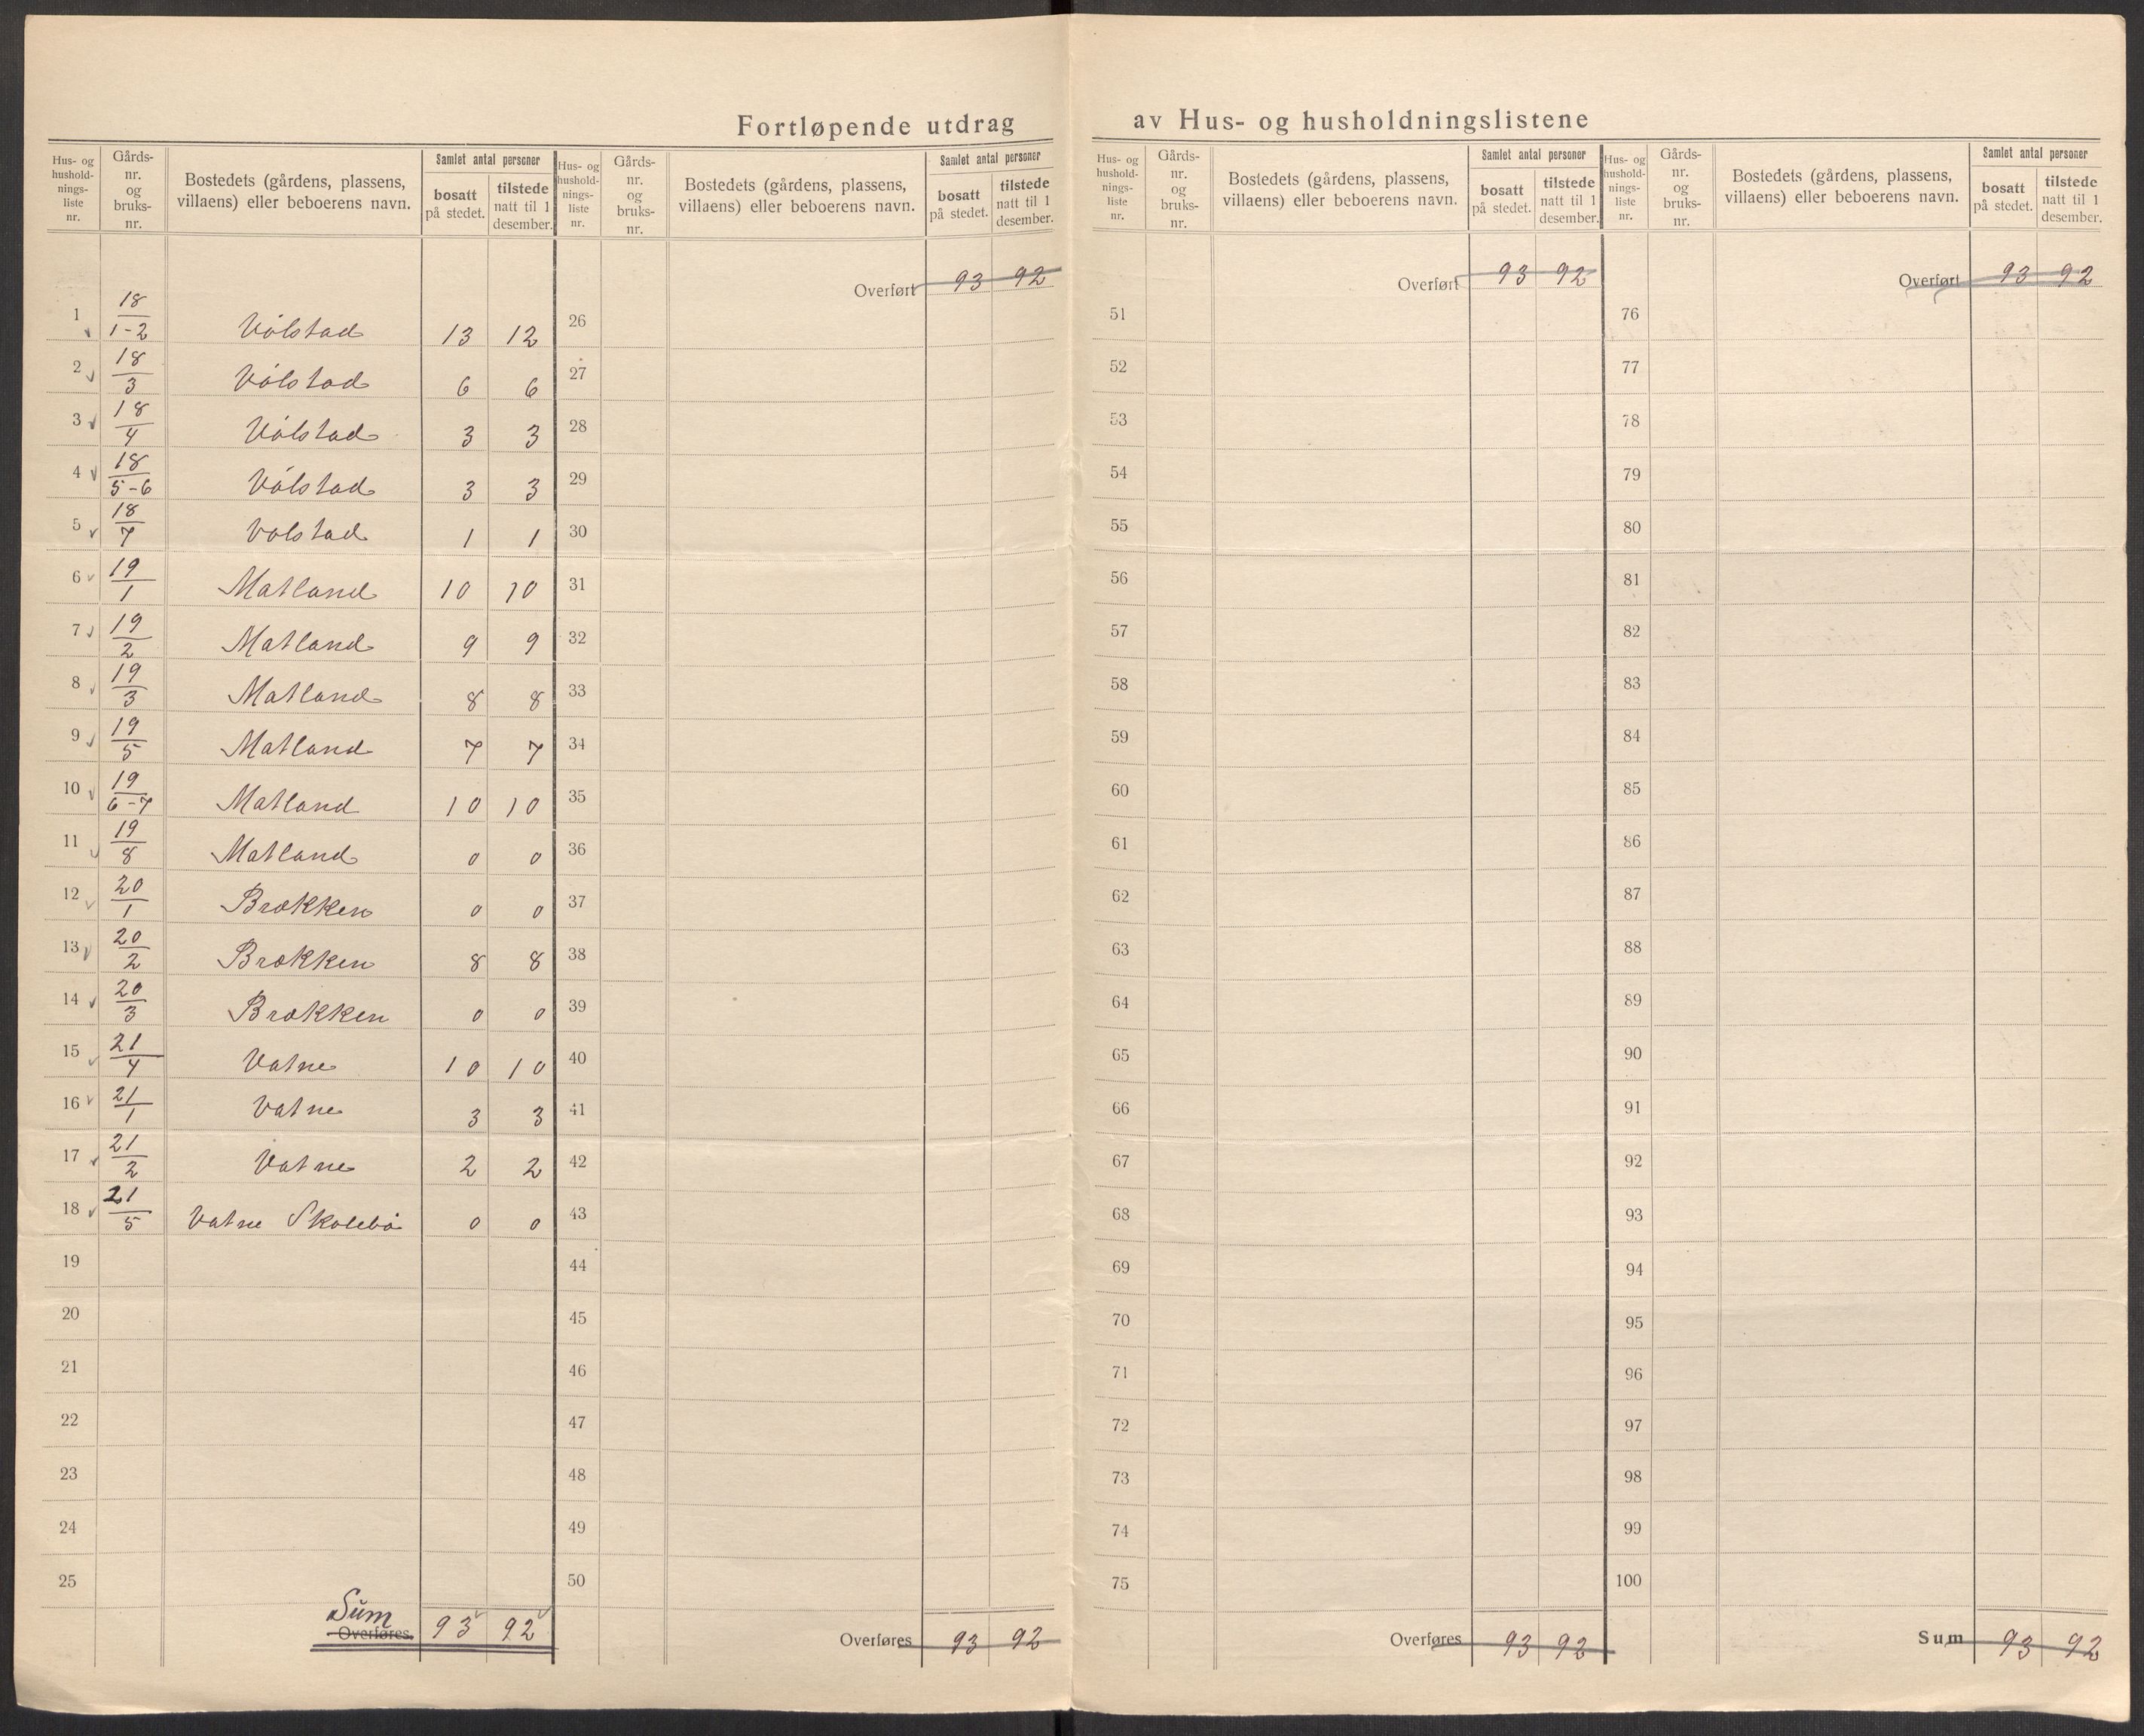 Fortløpende utdrag av Hus- og husholdningslistene
Hus- og husholdnings- liste nr. | Gårds- nr. og bruks- nr. | Bostedets (gårdens, plassens, villaens) eller beboerens navn. | Samlet antal personer | bosatt på stedet. | tilstede natt til 1 desember.
1 18/1-2 Vólstad 13 12
2 18/3 Vólstad 6 6
3 18/4 Vólstad 3 3
4 18/5-6 Vólstad 3 3
5 18/7 Volstad 1 1
6 19/1 Matland 10 10
7 19/2 Matland 9 9
8 19/3 Matland 8 8
9 19/5 Matland 7 7
10 19/6-7 Matland 10 10
11 19/8 Matland 0 0
12 20/1 Brækken 0 0
13 20/2 Brækken 8 8
14 20/3 Brækken 0 0
15 21/4 Vatne 10 10
16 21/1 Vatne 3 3
17 21/2 Vatne 2 2
18 21/5 Vatne Skolebó 0 0
19
20
21
22
23
24
25
Sum
Overføres. 93 92
Hus- og husholdnings- liste nr. | Gårds- nr. og bruks- nr. | Bostedets (gårdens, plassens, villaens) eller beboerens navn. | Samlet antal personer | bosatt på stedet. | tilstede natt til 1 desember.
Overført 93 92
26
27
28
29
30
31
32
33
34
35
36
37
38
39
40
41
42
43
44
45
46
47
48
49
50
Overføres 93 92
Hus- og husholdnings- liste nr. | Gårds- nr. og bruks- nr. | Bostedets (gårdens, plassens, villaens) eller beboerens navn. | Samlet antal personer | bosatt på stedet. | tilstede natt til 1 desember.
Overført 93 92
51
52
53
54
55
56
57
58
59
60
61
62
63
64
65
66
67
68
69
70
71
72
73
74
75
Overføres 93 92
Hus- og husholdnings- liste nr. | Gårds- nr. og bruks- nr. | Bostedets (gårdens, plassens, villaens) eller beboerens navn. | Samlet antal personer | bosatt på stedet. | tilstede natt til 1 desember.
Overført 93 92
76
77
78
79
80
81
82
83
84
85
86
87
88
89
90
91
92
93
94
95
96
97
98
99
100
Sum 93 92